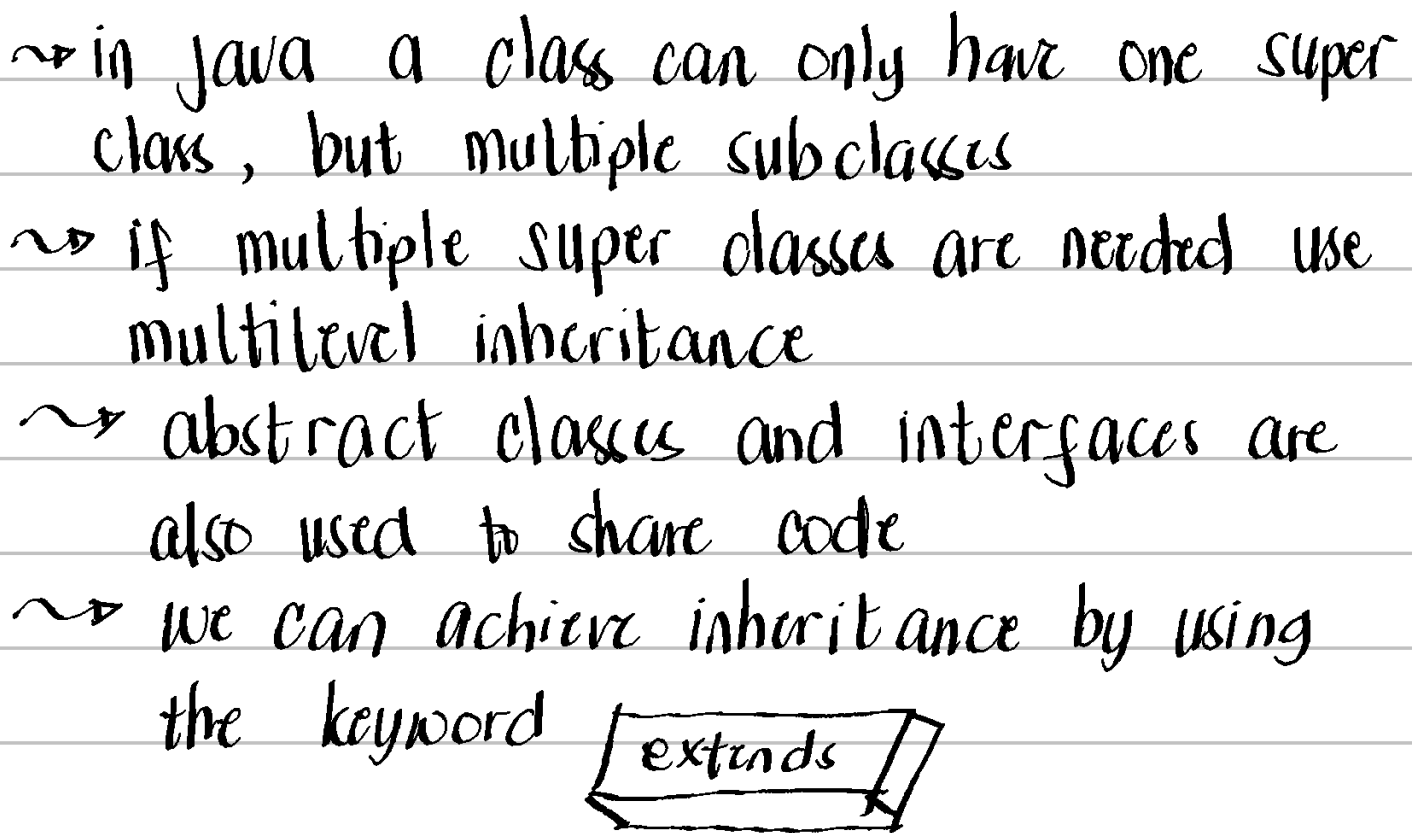 in java a class can only have one super
class, but multiple subclasses
if multiple super classes are needed use
multilevel inheritance
abstract classes and interfaces are
also used to share code
we can achieve inheritance by using
the keyword extends